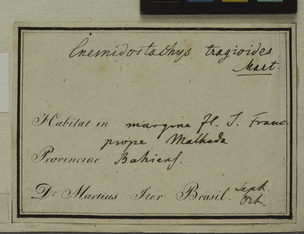 Cnemidostachys tragioides
Mart
Habitat in margine fl. S. Franc.
prope Malhada
Provinciae Bahiens.
Dr Martius Iter Brasil. Sept.
Oct.